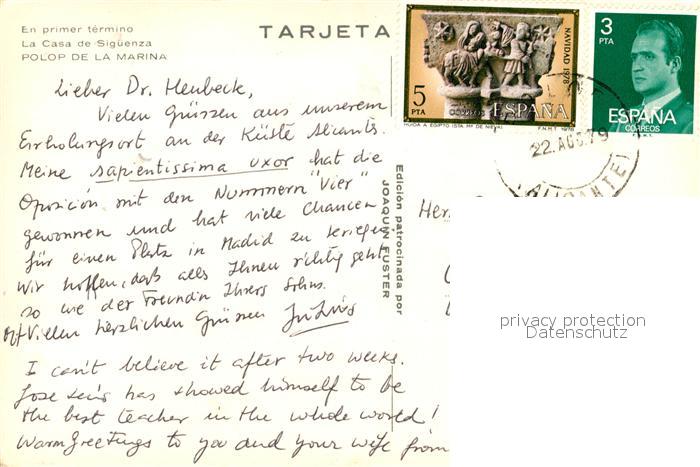 En primer término
La Casa de Sigüenza
POLOP DE LA MARINA
TARJETA
Lieber Dr. Heubeck,
Vielen Grüssen aus unserem
Erholungsort an der Küste Alicants.
Meine sapientissima uxor hat die
Oposición mit den Nummern "Vier"
gewonnen und hat viele Chancen
für einen Platz in Madrid zu kriegen
Wir hoffen, daß alles Ihnen richtig geht
so wie der Freundin Ihres Sohns.
Vielen herzlichen Grüssen
I can't believe it after two weeks.
Jose Luis has showed himself to be
the best teacher in the whole world!
Warm greetings to you and your wife from
Edición patrocinada por
JOAQUIN FUSTER
Her
5
PTA
NAVIDAD 1978
CORREOS
ESPAÑA
HUIDA A EGIPTO (STA. Mª DE NIEVA)
F.N.M.T. 1978
3
PTA
ESPAÑA
CORREOS
F.N.M.T.
22. AGO. 79
(ALICANTE)
privacy protection
Datenschutz